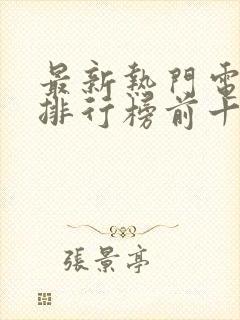 最新熱門電
排行榜前十
張景亭